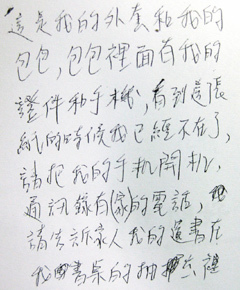 這是我的外套和我的
包包,包包裡面有我的
證件和手機,看到這張
紙的時侯我已經不在了,
請把我的手机開机,
通訊錄有(家)的電話,
請告訴家人我的遺書在
我書桌的抽屜裡